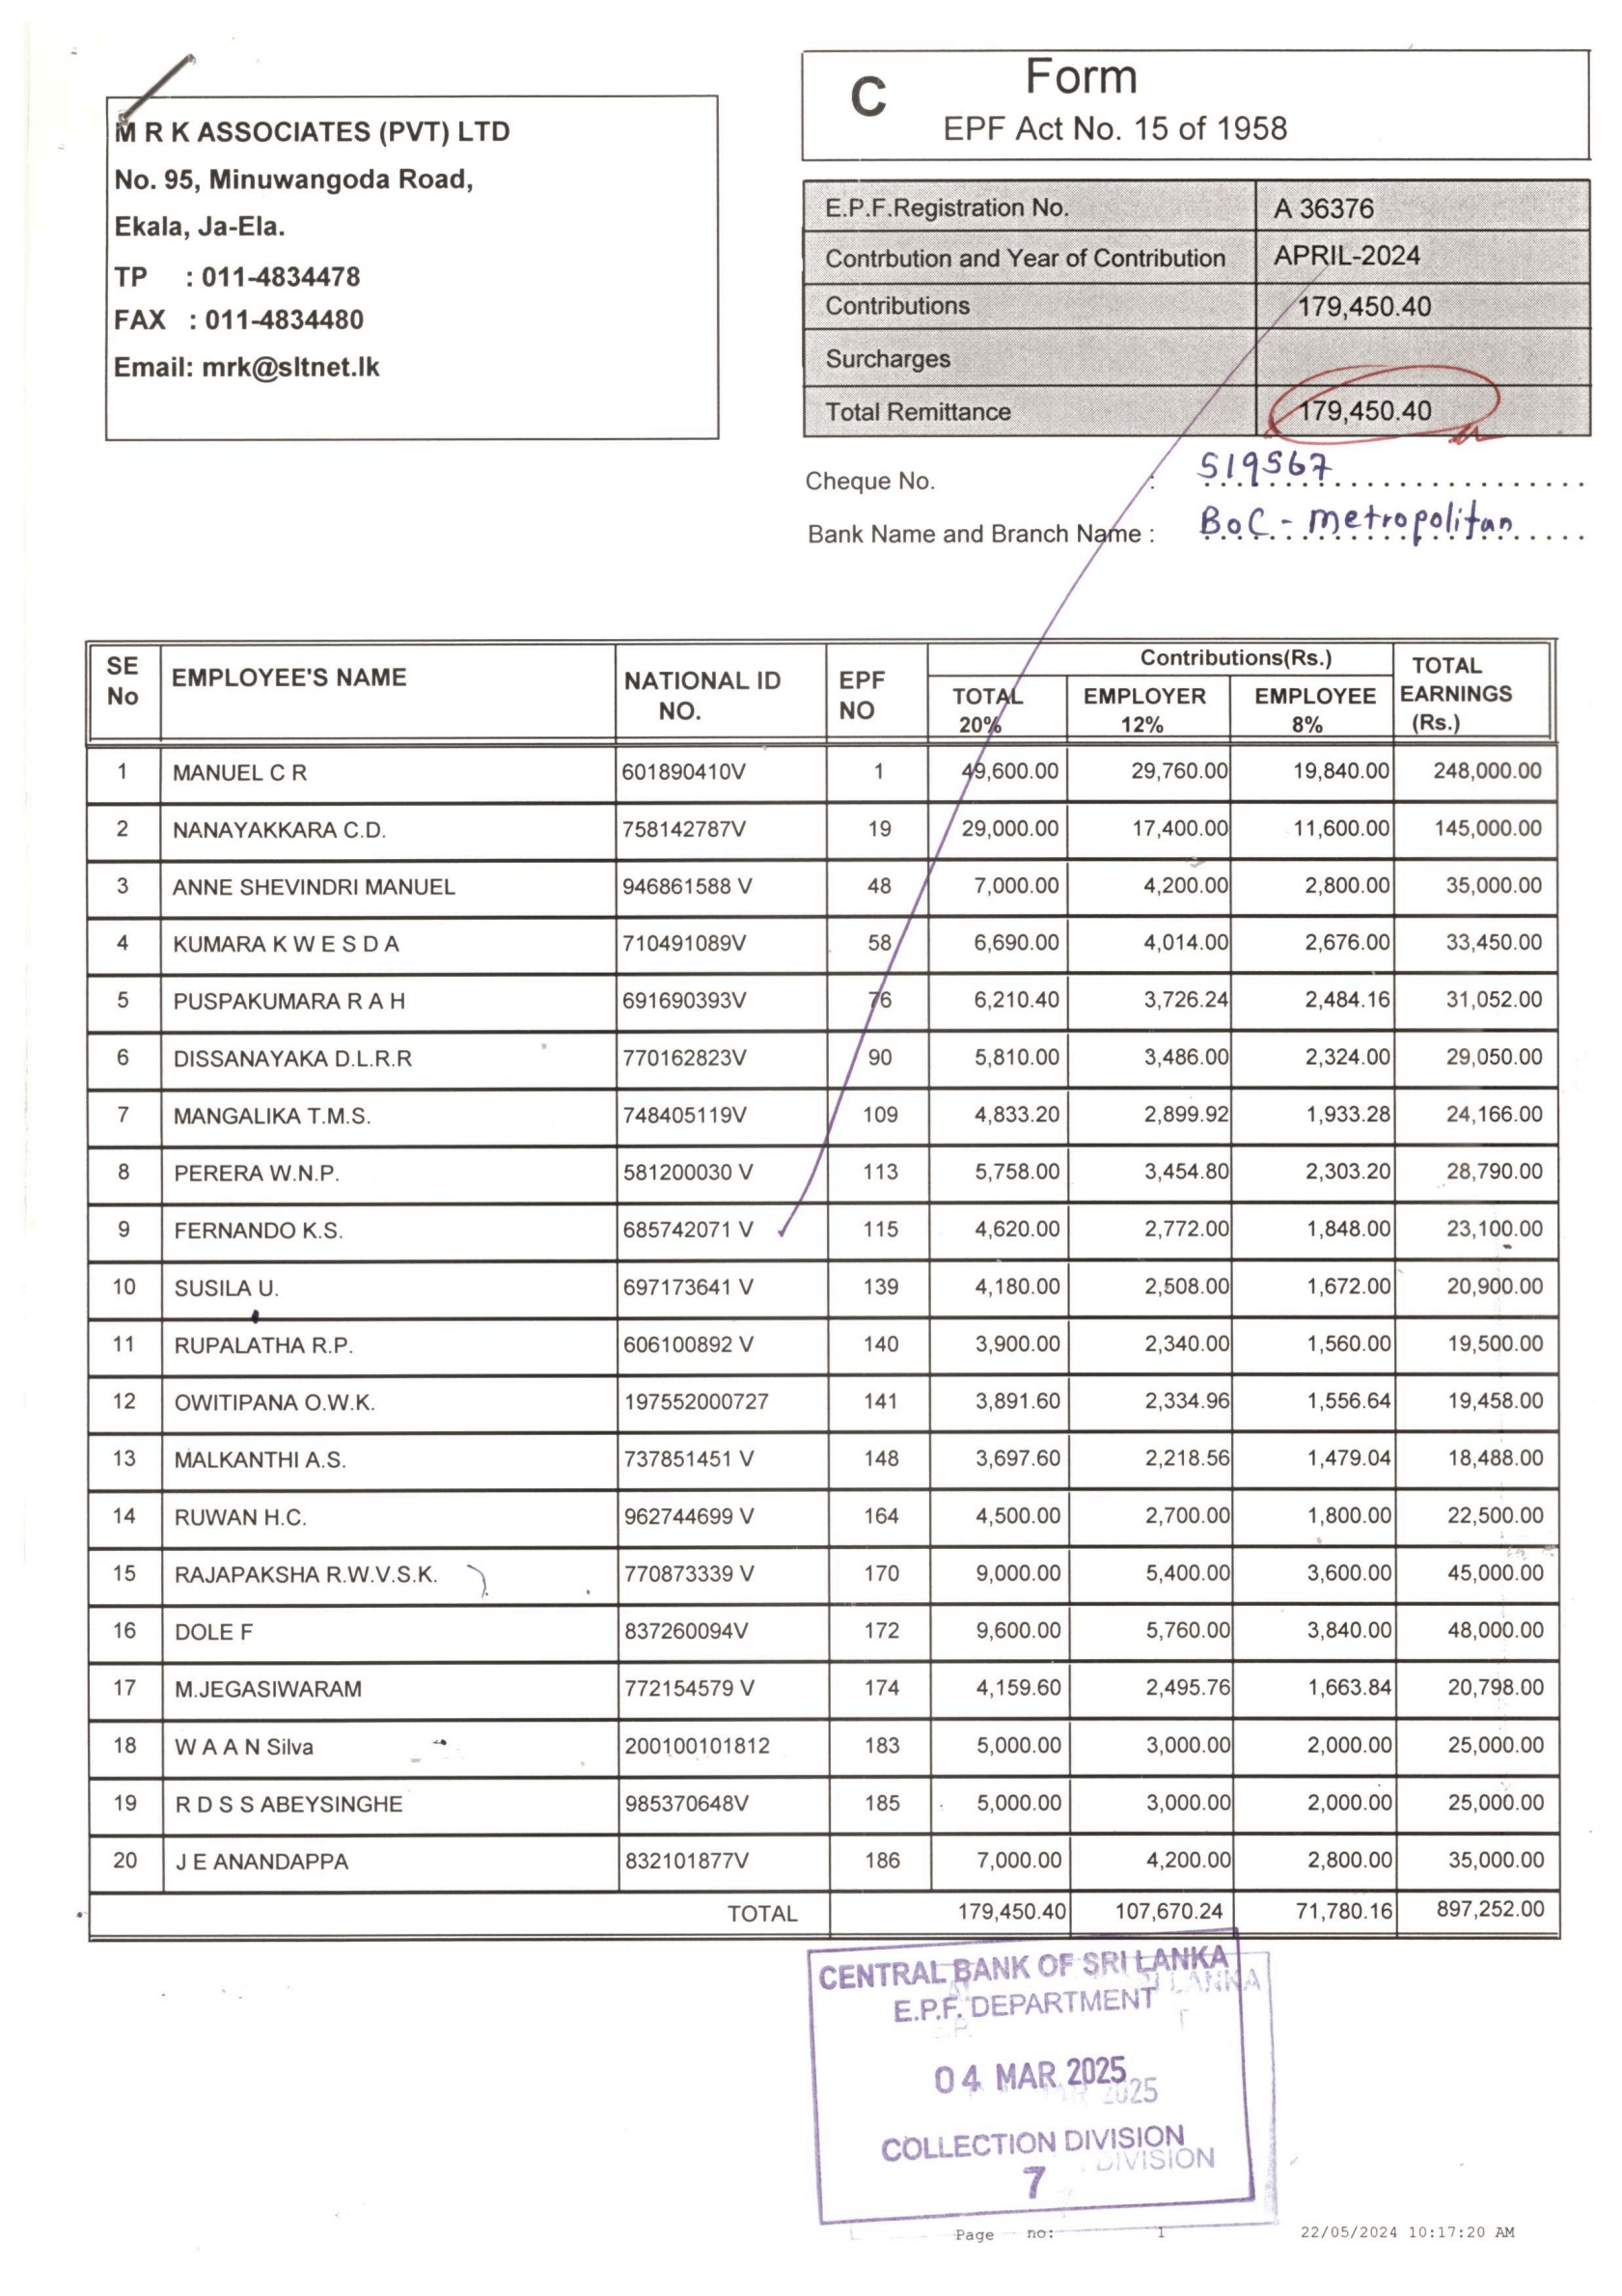 M R K ASSOCIATES (PVT) LTD
No. 95, Minuwangoda Road,
Ekala, Ja-Ela.
TP : 011-4834478
FAX : 011-4834480
Email: mrk@sltnet.lk
C Form
EPF Act No. 15 of 1958
E.P.F.Registration No. A 36376
Contrbution and Year of Contribution APRIL-2024
Contributions 179,450.40
Surcharges
Total Remittance 179,450.40
Cheque No. : 519567
Bank Name and Branch Name : BoC - metropolitan
SE No EMPLOYEE'S NAME NATIONAL ID NO. EPF NO Contributions(Rs.) TOTAL 20% EMPLOYER 12% EMPLOYEE 8% TOTAL EARNINGS (Rs.)
1 MANUEL C R 601890410V 1 49,600.00 29,760.00 19,840.00 248,000.00
2 NANAYAKKARA C.D. 758142787V 19 29,000.00 17,400.00 11,600.00 145,000.00
3 ANNE SHEVINDRI MANUEL 946861588 V 48 7,000.00 4,200.00 2,800.00 35,000.00
4 KUMARA K W E S D A 710491089V 58 6,690.00 4,014.00 2,676.00 33,450.00
5 PUSPAKUMARA R A H 691690393V 76 6,210.40 3,726.24 2,484.16 31,052.00
6 DISSANAYAKA D.L.R.R 770162823V 90 5,810.00 3,486.00 2,324.00 29,050.00
7 MANGALIKA T.M.S. 748405119V 109 4,833.20 2,899.92 1,933.28 24,166.00
8 PERERA W.N.P. 581200030 V 113 5,758.00 3,454.80 2,303.20 28,790.00
9 FERNANDO K.S. 685742071 V 115 4,620.00 2,772.00 1,848.00 23,100.00
10 SUSILA U. 697173641 V 139 4,180.00 2,508.00 1,672.00 20,900.00
11 RUPALATHA R.P. 606100892 V 140 3,900.00 2,340.00 1,560.00 19,500.00
12 OWITIPANA O.W.K. 197552000727 141 3,891.60 2,334.96 1,556.64 19,458.00
13 MALKANTHI A.S. 737851451 V 148 3,697.60 2,218.56 1,479.04 18,488.00
14 RUWAN H.C. 962744699 V 164 4,500.00 2,700.00 1,800.00 22,500.00
15 RAJAPAKSHA R.W.V.S.K. 770873339 V 170 9,000.00 5,400.00 3,600.00 45,000.00
16 DOLE F 837260094V 172 9,600.00 5,760.00 3,840.00 48,000.00
17 M.JEGASIWARAM 772154579 V 174 4,159.60 2,495.76 1,663.84 20,798.00
18 W A A N Silva 200100101812 183 5,000.00 3,000.00 2,000.00 25,000.00
19 R D S S ABEYSINGHE 985370648V 185 5,000.00 3,000.00 2,000.00 25,000.00
20 J E ANANDAPPA 832101877V 186 7,000.00 4,200.00 2,800.00 35,000.00
TOTAL 179,450.40 107,670.24 71,780.16 897,252.00
CENTRAL BANK OF SRI LANKA
E.P.F. DEPARTMENT
04 MAR 2025
COLLECTION DIVISION
7
Page no: 1 22/05/2024 10:17:20 AM